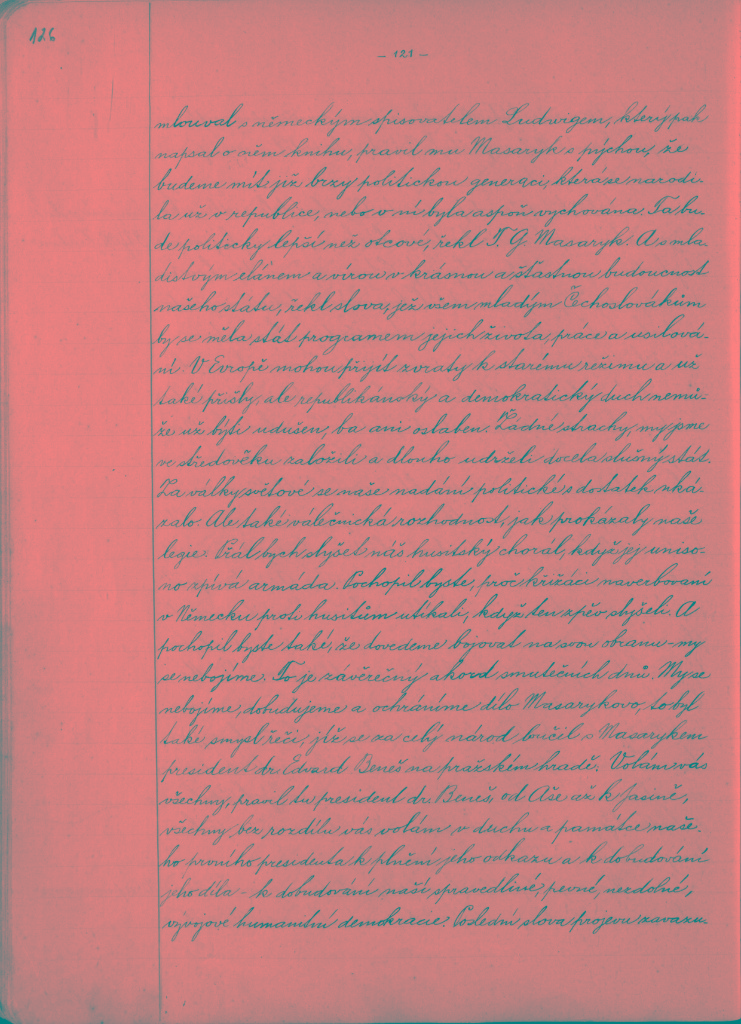 126
- 121 -
mlouval s německým spisovatelem Ludwigem, který pak
napsal o něm knihu, pravil mu Masaryk s pýchou, že
budeme mít již brzy politickou generaci, která se narodi-
la už v republice, nebo v ní byla aspoň vychována. Ta bu-
de politicky lepší než otcové, řekl T. G. Masaryk. A s mla-
distvým elánem a vírou v krásnou a šťastnou budoucnost
našeho státu, řekl slova, jež všem mladým Čechoslovákům
by se měla stát programem jejich života, práce a usilová-
ní. V Evropě mohou přijít zvraty k starému režimu a už
také přišly, ale republikánský a demokratický duch nemů-
že už býti udušen, ba ani oslaben. Žádné strachy, my jsme
ve středověku založili a dlouho udrželi docela slušný stát.
Za války světové se naše nadání politické s dostatek uká-
zalo. Ale také válečnická rozhodnost, jak prokázaly naše
legie. Přál bych slyšet náš husitský chorál, když jej uniso-
no zpívá armáda. Pochopil byste, proč křižáci naverbovaní
v Německu proti husitům utíkali, když ten zpěv slyšeli. A
pochopil byste také, že dovedeme bojovat na svou obranu - my
se nebojíme. To je závěrečný akord smutečních dnů. My se
nebojíme, dobudujeme a ochráníme dílo Masarykovo, to byl
také smysl řeči, jíž se za celý národ loučil s Masarykem
president dr. Edvard Beneš na pražském hradě. Volám vás
všechny, pravil tu president dr. Beneš, od Aše až k Jasině,
všechny bez rozdílu vás volám, v duchu a památce naše-
ho prvního presidenta k plnění jeho odkazu a k dobudování
jeho díla - k dobudování naší spravedlivé, pevné, nezdolné,
vývojové humanitní demokracie. Poslední slova projevu zavazu-